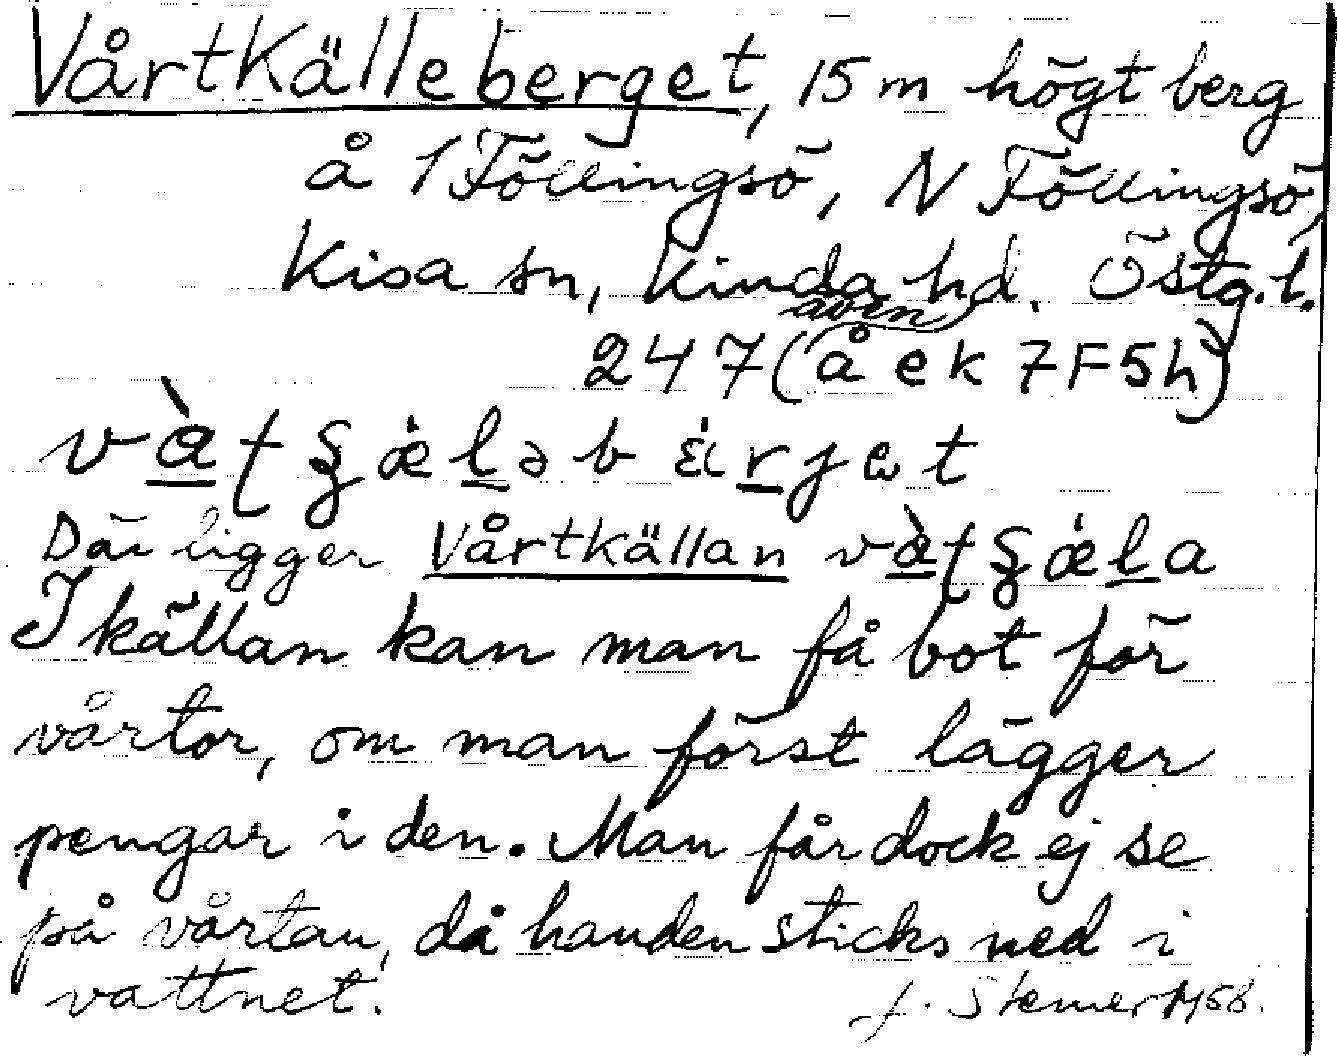 Vårtkälleberget, 15 m högt berg
å 1 Föllingsö, N Föllingsö,
Kisa sn, Kinda hd. Östg.l.
även
247 (å ek 7F5h)
Där ligger Vårtkällan
I källan kan man få bot för
vårtor, om man först lägger
pengar i den. Man får dock ej se
på vårtan, då handen sticks ned i
vattnet.